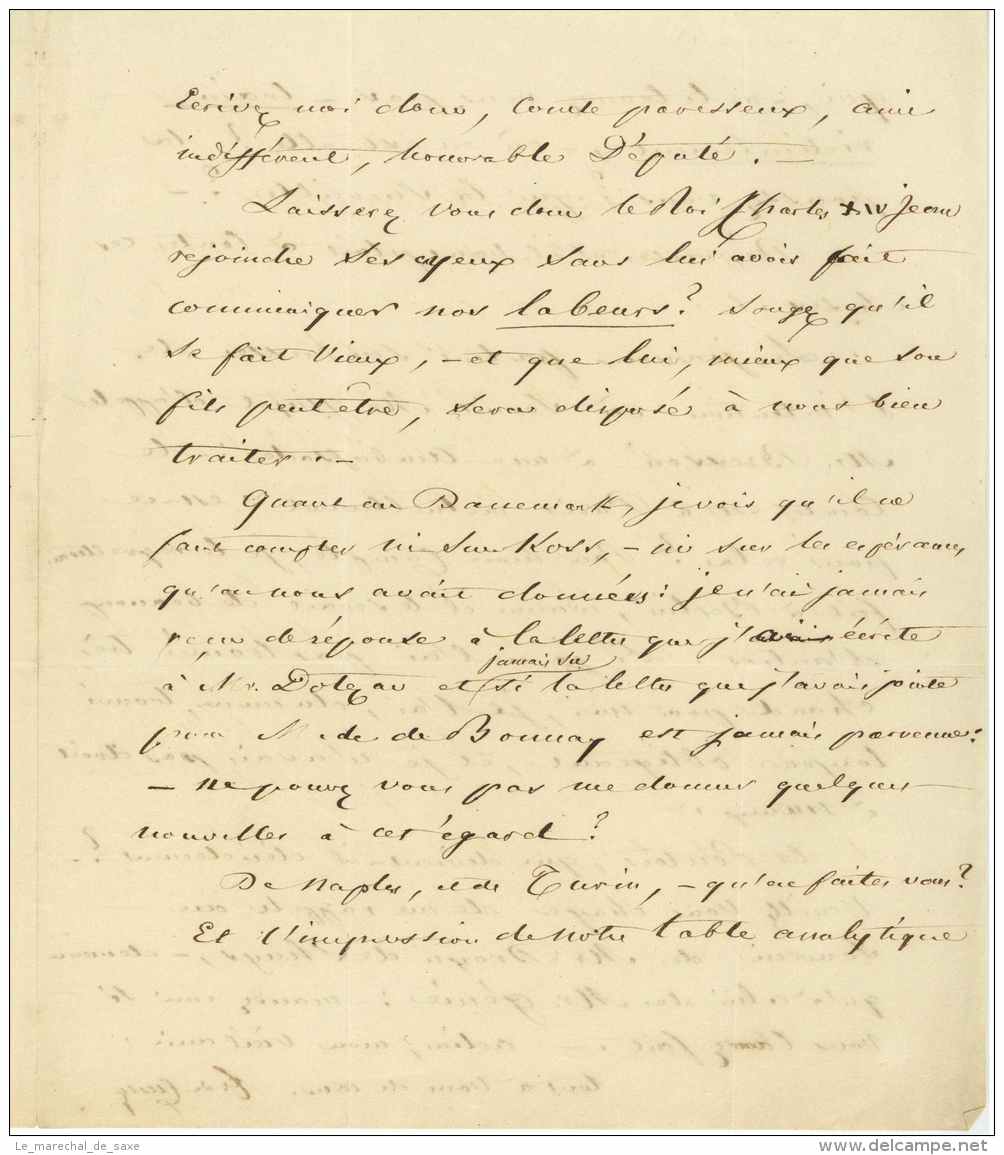 Ecrivez moi donc, Comte paresseux, ami
indifférent, honorable Député. —
Laisserez vous donc le Roi Charles XIV Jean
rejoindre ses ayeux sans lui avoir fait
communiquer nos labeurs? Songez qu'il
se fait vieux, — et que lui, mieux que son
fils peut être, sera disposé à nous bien
traiter. —
Quant au Danemark, je vois qu'il ne
faut compter ni sur Koss, — ni sur les espérances
qu'on nous avait données: je n'ai jamais
reçu de réponse à la lettre que j'avais écrite
à Mr. Dotezac et jamais su si la lettre que j'avais jointe
pour M. de Bonnay est jamais parvenue:
— ne pouvez vous pas me donner quelques
nouvelles à cet égard?
De Naples, et de Turin, — qu'en faites vous?
Et l'impression de notre table analytique
Le_marechal_de_saxe
delcampe.net